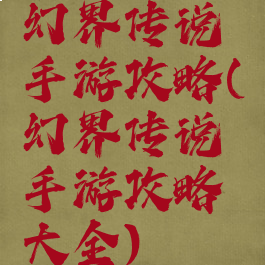 幻界传说
手游攻略(
幻界传说
手游攻略
大全)